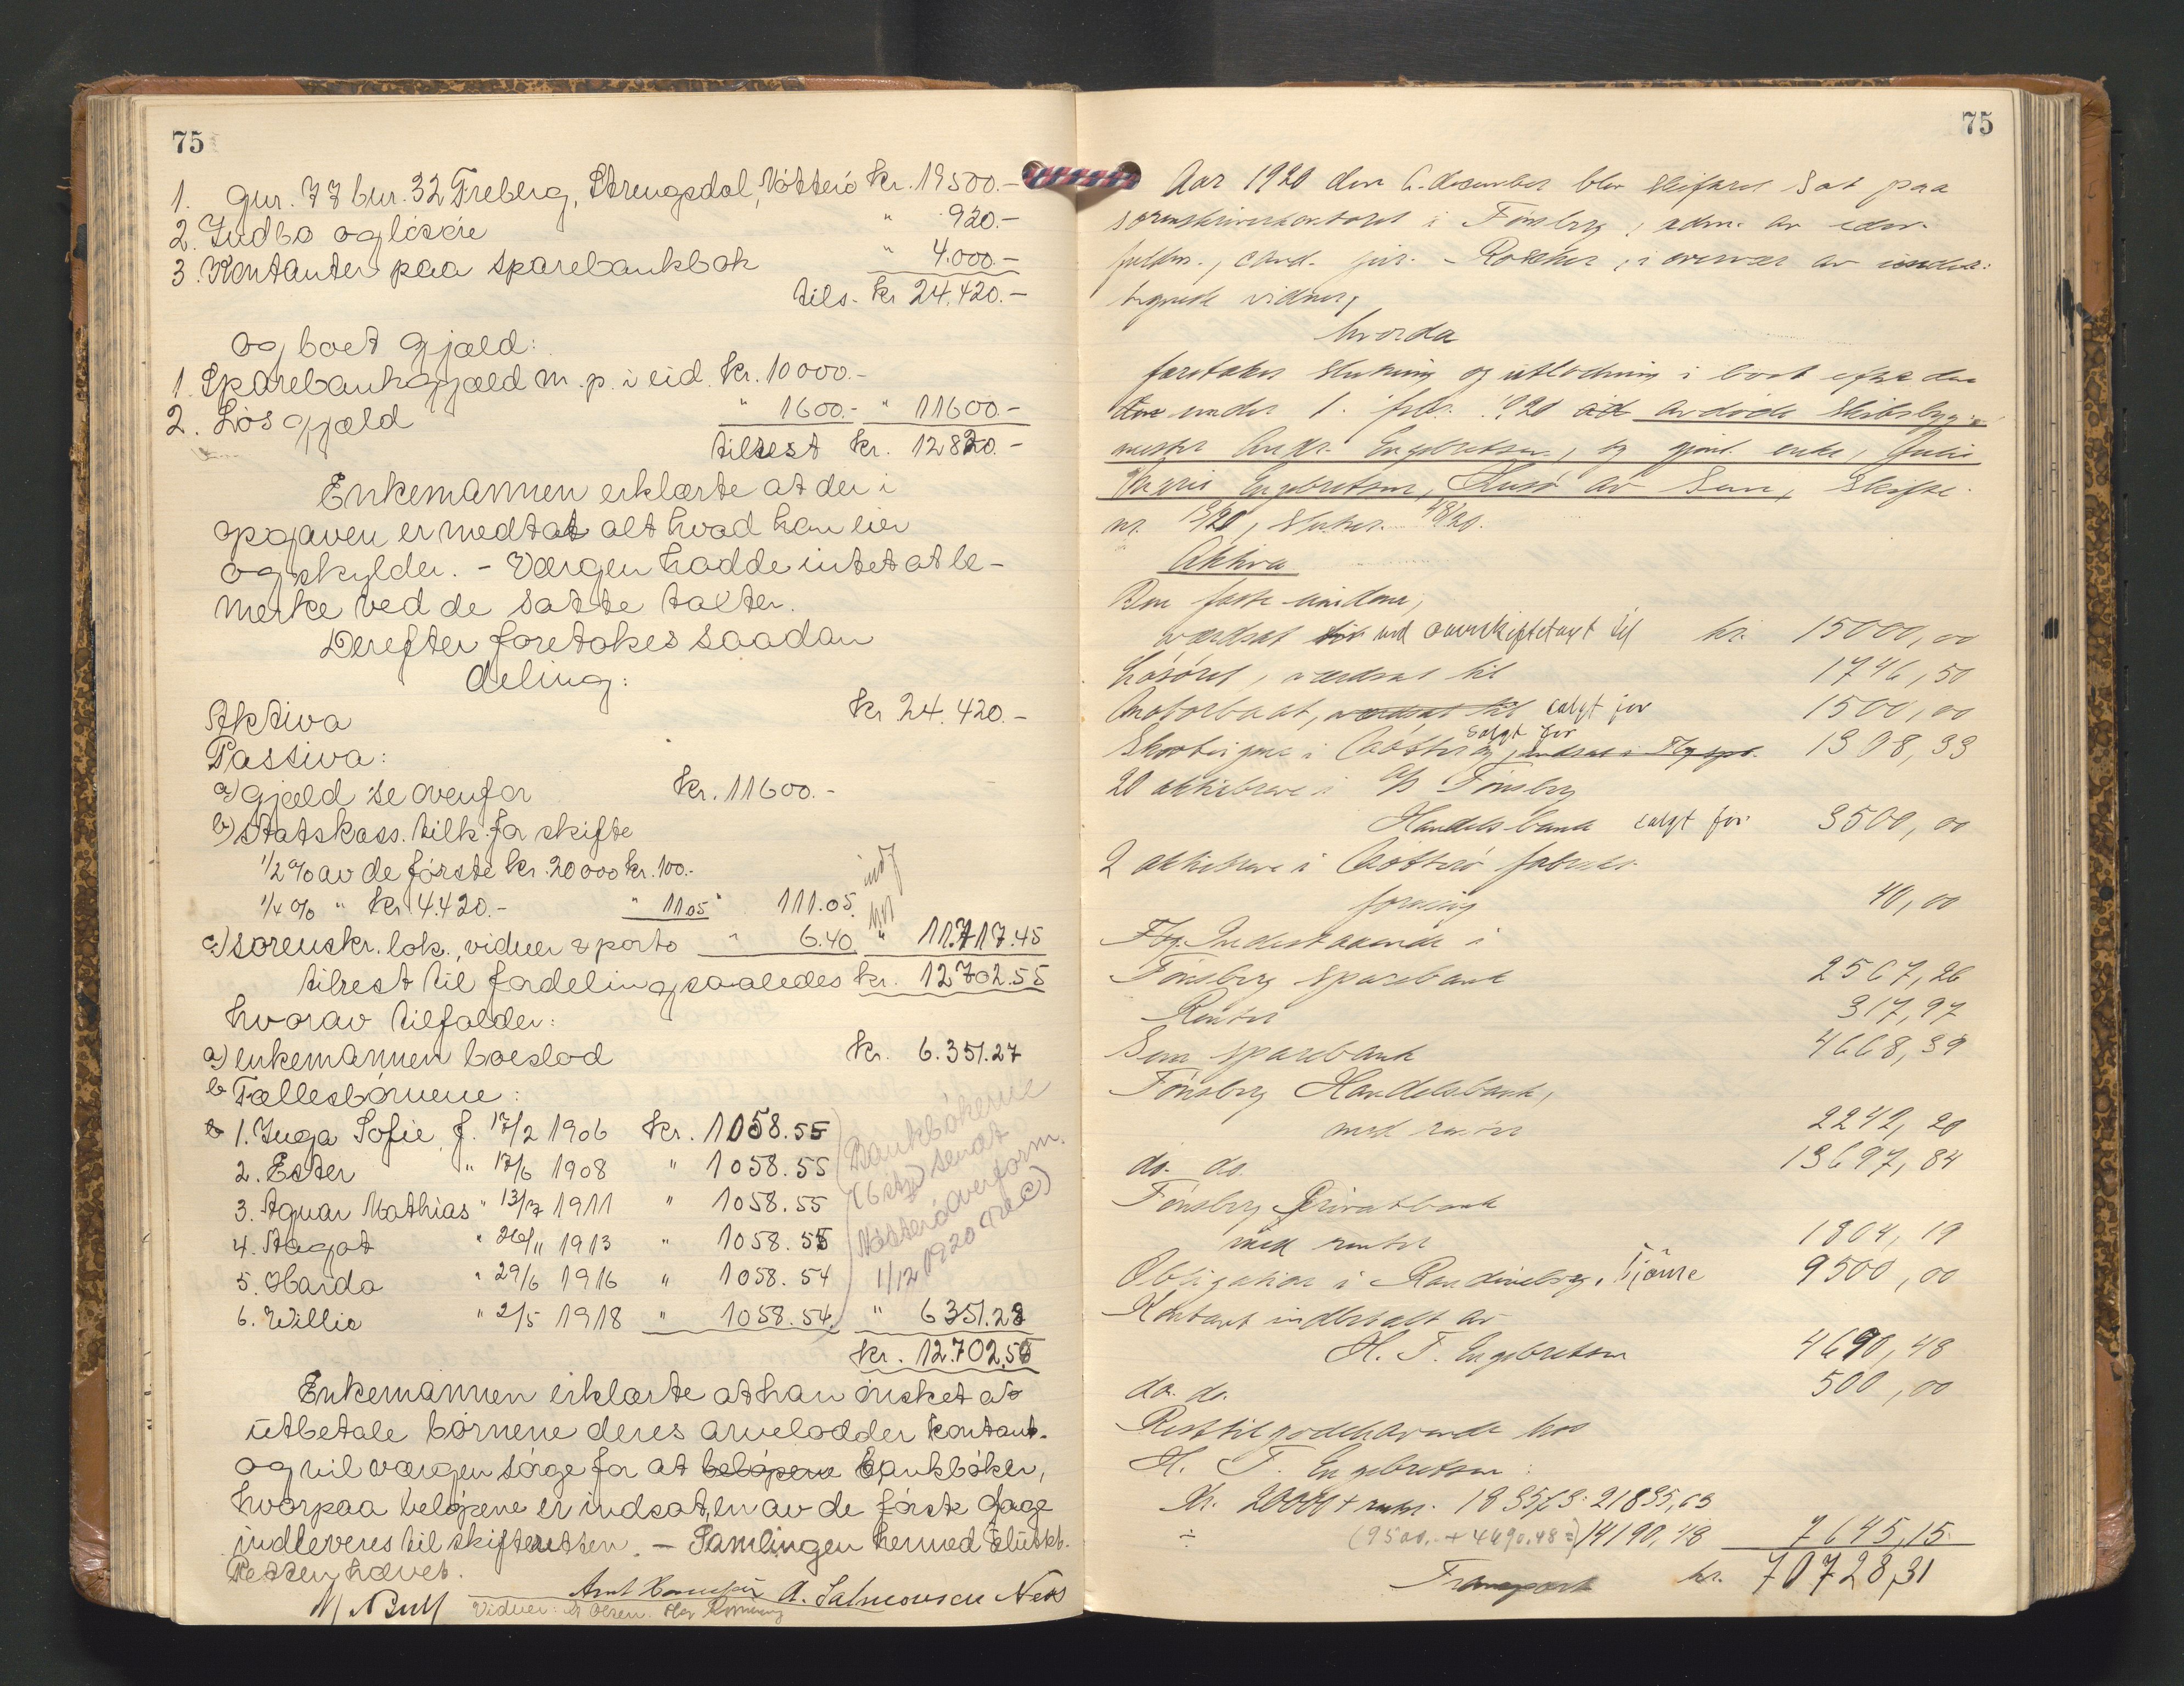 75
1. gnr. 77 bnr. 32 Freberg, Strengsdal, Nötterö kr. 19500.-
2. Indbo og lösöre " 920.-
3. Kontanter paa sparebankbok " 4.000.-
tils. kr 24.420.-
og boet gjæld:
1. Sparebankgjæld m. p. i eid. kr. 10000.-
2. Lös gjæld " 1600.- " 11600.-
tilrest kr. 12820.-
Enkemannen erklærte at der i
opgaven er medtat alt hvad han eier
og skylder. - Værgen hadde intet at be-
merke ved de satte takter.
Derefter foretokes saadan
deling:
Aktiva kr 24.420.-
Passiva:
a) gjæld se ovenfor kr. 11600.-
b) statskass. tilk. for skifte
1/2 % av de förste kr. 20000 kr. 100.-
1/4 % " kr 4.420.- " 11.05 " 111.05
c) sorenskr. lok., vidner & porto " 6.40 " 11.717.45
tilrest til fordeling saaledes kr. 12702.55
hvorav tilfalder:
a) enkemannen boeslod kr. 6.351.27
b Fællesbörnene:
1. Inga Sofie, f. 17/2 1906 kr. 1058.55
2. Ester " 17/6 1908 " 1058.55
3. Agnar Mathias " 13/7 1911 " 1058.55
4. Aagot " 26/11 1913 " 1058.55
5. Harda " 29/6 1916 " 1058.54
6. Willie " 2/5 1918 " 1058.54 " 6351.28
kr. 12.702.55
Bankbökerne
(6 stk) sendt
Nötterö overform.
1/12 1920
Enkemannen erklærte at han önsket at
utbetale börnene deres arvelodder kontant.
og vil værgen sörge for at belöpene bankböker,
hvorpaa belöpene er indsat, en av de förste dage
indleveres til skifteretten. - Samlingen hermed sluttet.
Retten hævet.
A. Salmonsen Næs
Vidner: Olsen.
75
Aar 1920 den 6. december blev skifteret sat paa
sorenskriverkontoret i Tönsberg, adm. av edsv.
fuldm., cand. jur. i overvær av under-
tegnede vidner,
hvorda
foretokes slutning og utlodning i boet efter den
den under 1. febr. 1920 avdöde skibsbyg-
mester Andr. Engebretsen, og gjenl. enke, Julie
Marie Engebretsen, Husö av Sem, skifte
nr. 13/20, sluttet
Aktiva
Den faste eiendom,
værdsat ved arveskiftetaxt til kr. 15000,00
Lösöret, værdsat til 1746,50
Motorbaat, værdsat til solgt for 1500,00
i Nötterö, solgt for 1308,33
20 aktiebreve i A/S Tönsberg
Handelsbank solgt for 3500,00
2 aktiebreve i Nötterö
forening 40,00
Indestaaende i
Tönsberg sparebank 2567,26
Renter 317,97
Sem sparebank 4668,39
Tönsberg Handelsbank,
med renter 2242,20
do. do. 13697,84
Tönsberg Privatbank
med renter 1804,19
Obligation i Tjöme 9500,00
Kontant indbetalt av
H. T. Engebretsen 4690,48
do. do. 500,00
Resttilgodehavende hos
H. T. Engebretsen:
kr. 20000 + renter 1835,63: 21835,63
÷ (9500.- + 4690.48 =) 14190,48 7645,15
Transport kr. 70728,31